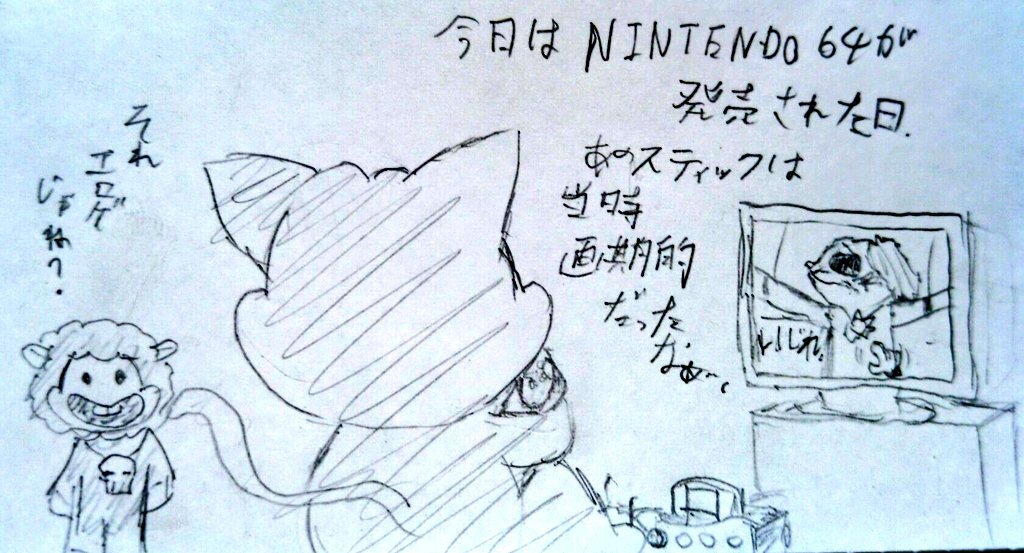 今日はNINTENDO64が
発売された日.
あのスティックは
当時
画期的
だった
なぁ…
それ
エロゲ
じゃね?
いじれ